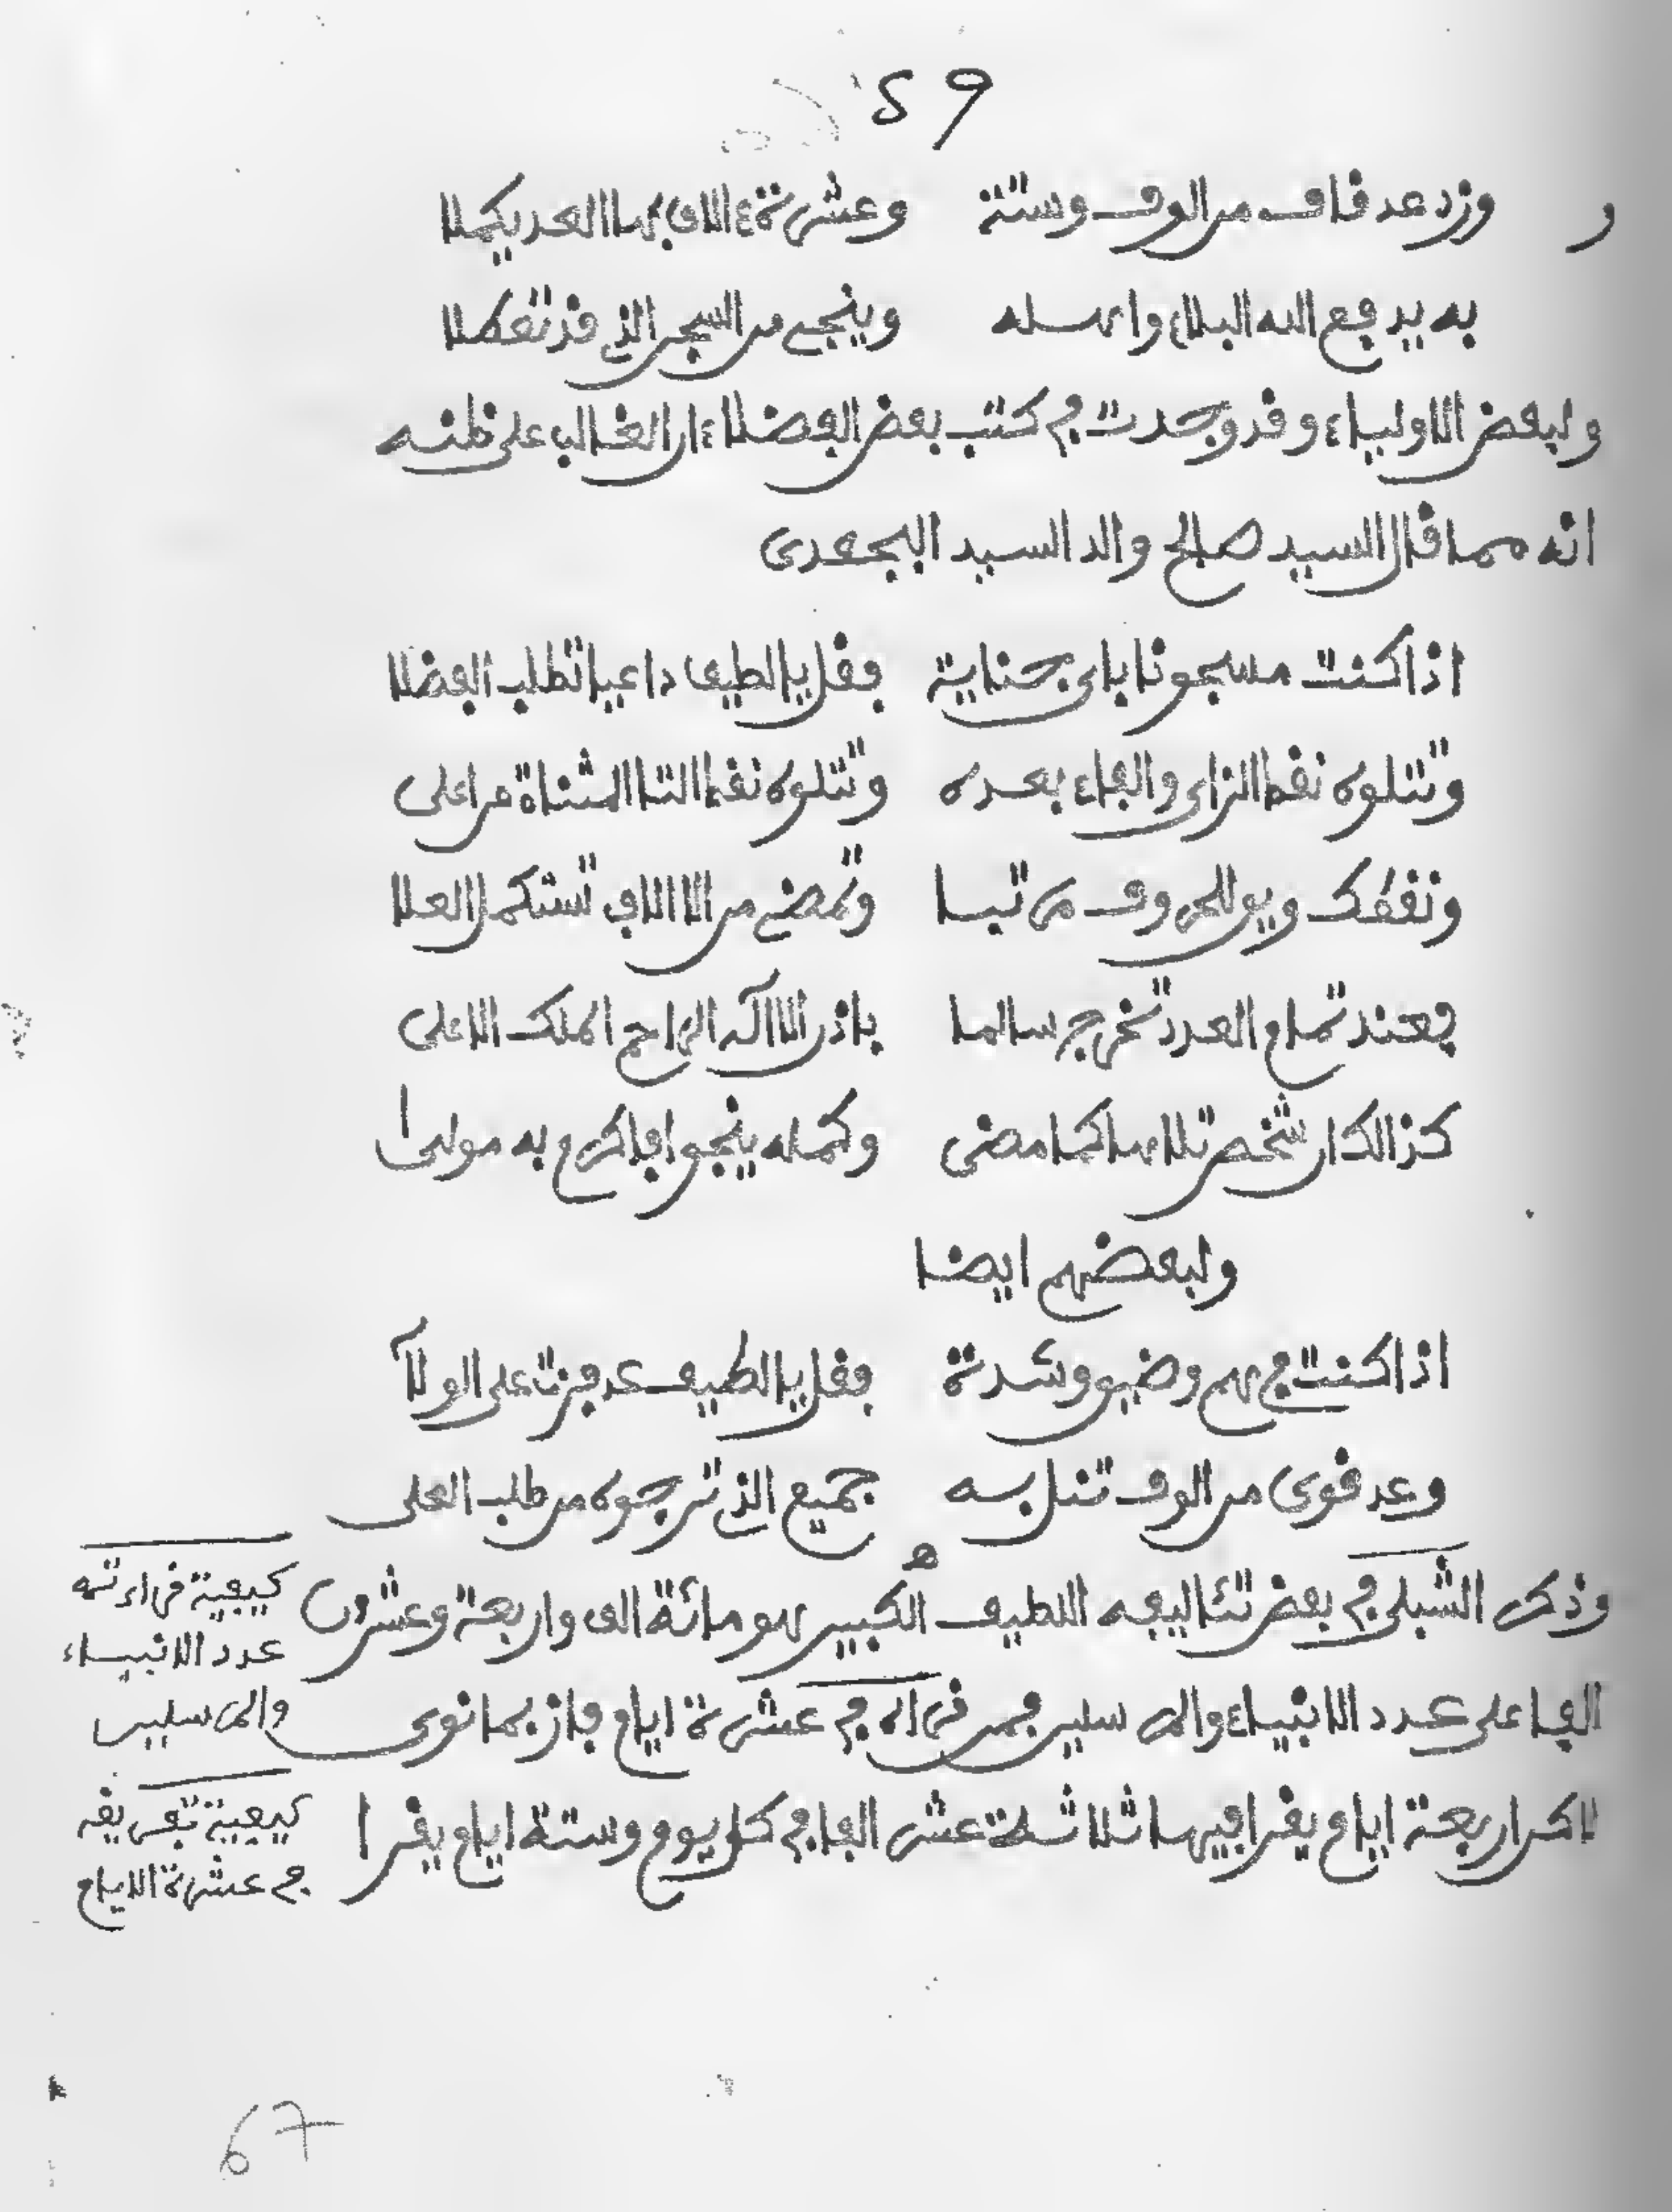 ٢٩
وزد عد قاف من الوف وستة وعشرة ءالاف بها العد يكملا
به يدفع الله البلاء واهله وينجي من السجن الذي قد تقفلا
ولبعض الاولياء وقد وجدت في كتب بعض الفضلاء ان الغالب على ظنه
انه مما قال السيد صالح والد السيد البجعدى
اذا كنت مسجونا باى جناية فقل يا لطيفا داعيا تطلب الفضلا
وتتلوه نقط الزاى والفاء بعده وتتلوه نقط التا المثناة من اعلى
ونقطك ويو للحروف مرتبا وتمضي من الاالاف تستكمل العلا
فعند تمام العدد تخرج سالما باذن الاله الراحم الملك الاعلى
كذالك ان شخص تلاها كما مضى وكمله ينجوا فاكرم به مولى
ولبعضهم ايضا
اذا كنت في هم وضيق وشدة فقل يا لطيف عد فزت على الولا
وعد قوى من الوف تنل به جميع الذي ترجوه من طلب العلى
وذكر الشبلي في بعض تئاليفه اللطيف الكبير هو مائة الف واربعة وعشرون
الفا على عدد الانبياء والمرسلين فمن قراه في عشرة ايام فاز بما نوى
لاكن اربعة ايام يقرا فيها ثلاثة عشر الفا في كل يوم وستة ايام يقرا
كيفية قراءته
عدد الانبياء
والمرسلين
كيفية تفريقه
في عشرة الايام
67